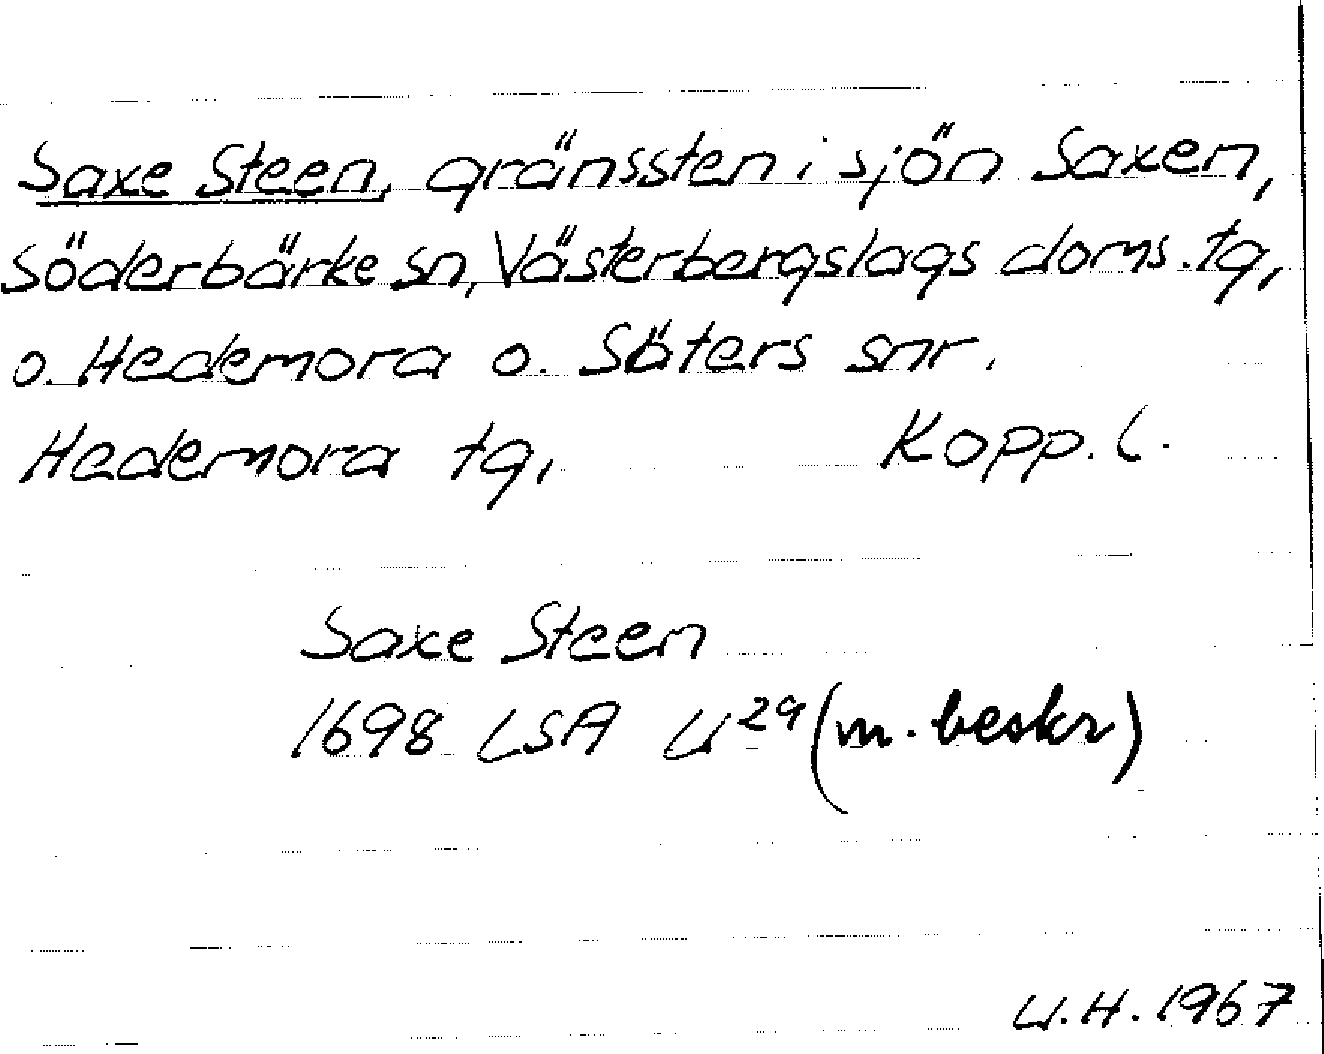 Saxe Steen, gränssten i sjön Saxen,
Söderbärke sn, Västerbergslags doms. tg,
o. Hedemora o. Säters snr.
Hedemora tg, Kopp. l.
Saxe Steen
1698 LSA U²⁹ (m. beskr)
U.H. 1967